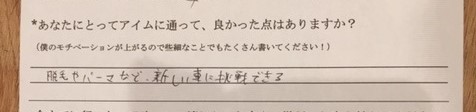 *あなたにとってアイムに通って、良かった点はありますか？
（僕のモチベーションが上がるので些細なことでもたくさん書いてください！）
脱毛やパーマなど、新しい事に挑戦できる